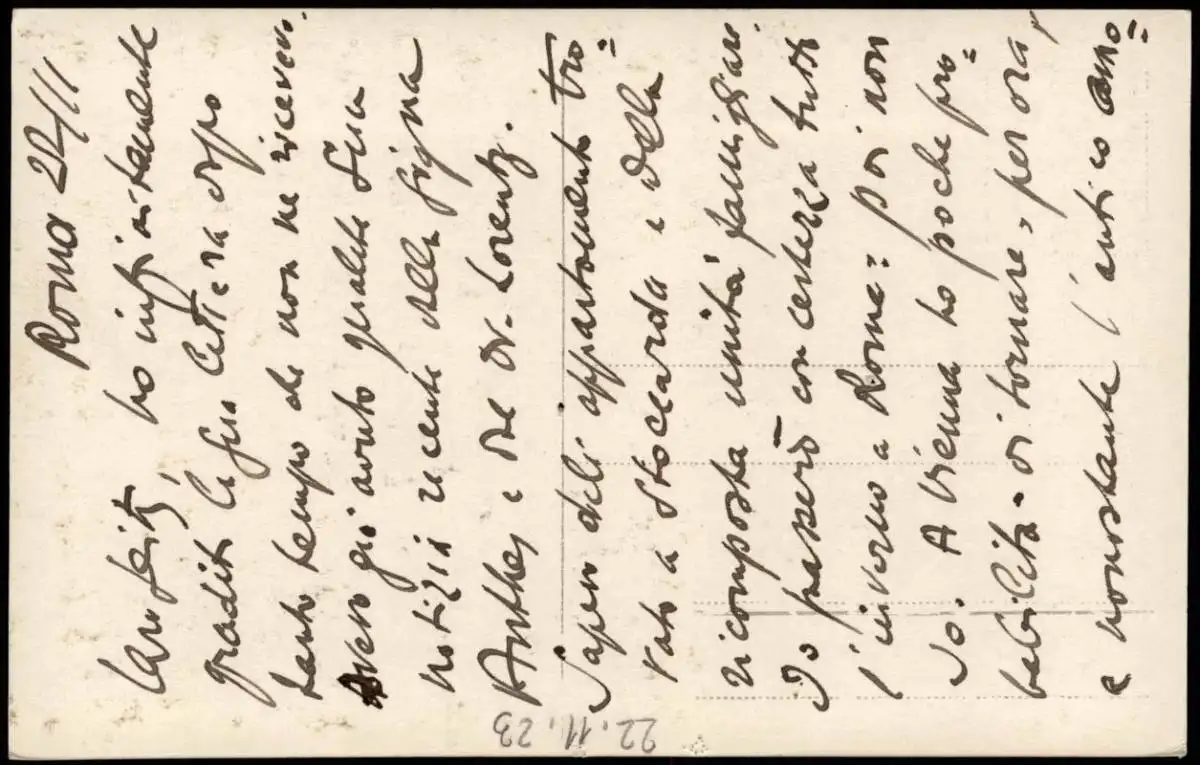 Roma 22/11
Caro Seitz, ho infinitamente
gradito la Sua lettera dopo
tanto tempo che non ne ricevevo.
Avevo già avuto qualche Sua
notizia recente dalla Sigra
Anthes e dal Dr. Lorentz.
Sapevo dell'appartamento tro=
vato a Stoccarda e della
ricomposta unità famigliare.
Io passerò con certezza tutto
l'inverno a Roma: poi non
so. A Vienna ho poche pro=
babilità di tornare, per ora,
e nonostante l'antico amo=
22.11.23